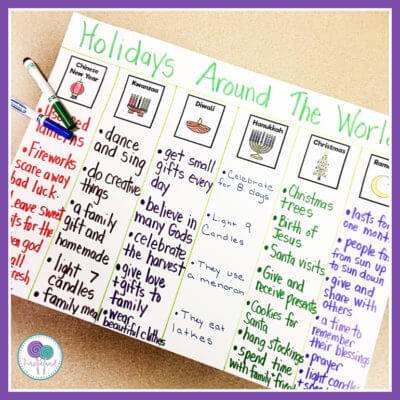 Holidays Around The World
Chinese
New Year
Kwanzaa
Diwali
Hanukkah
Christmas
• Fireworks
scare away
bad luck.
Leave sweet
for the
god
• dance
and sing
• do creative
things
• a family
gift and
homemade
• light 7
candles
• family meal
• get small
gifts every
day
• believe in
many Gods
• celebrate
the harvest
• give love
+ gifts to
family
• wear
beautiful clothes
• Celebrate
for 8 days
• Light 9
Candles
• They use
a menorah
• They eat
latkes
• Christmas
trees
• Birth of
Jesus
• Santa visits
• Give and
receive presents
• Cookies for
Santa
• hang stockings
• Spend time
with family
• lasts for
one month
• people fast
from sun up
to sun down
• give and
share with
others
• a time to
remember
their blessings
• prayer
• light candles